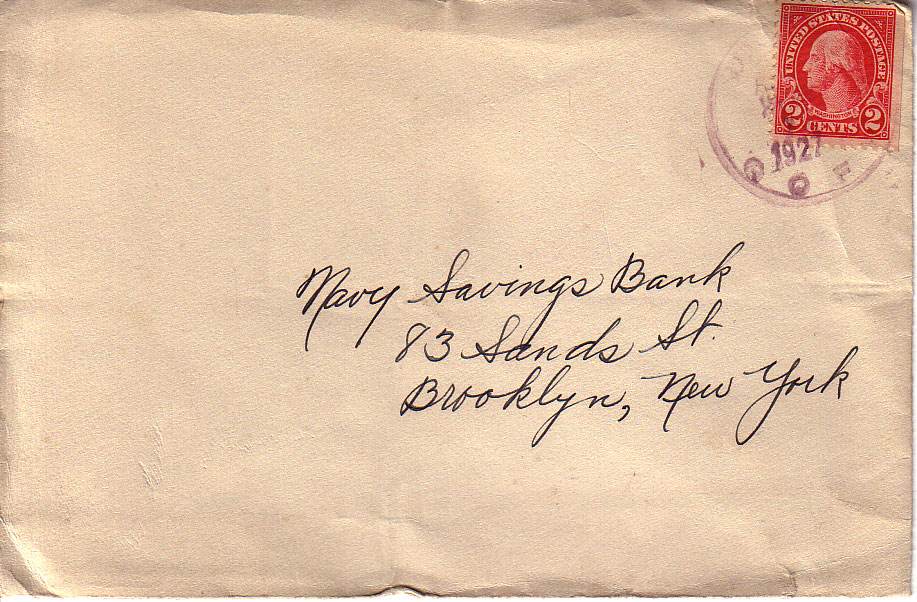 UNITED STATES POSTAGE
WASHINGTON
2 CENTS 2
1927
Navy Savings Bank
83 Sands St.
Brooklyn, New York